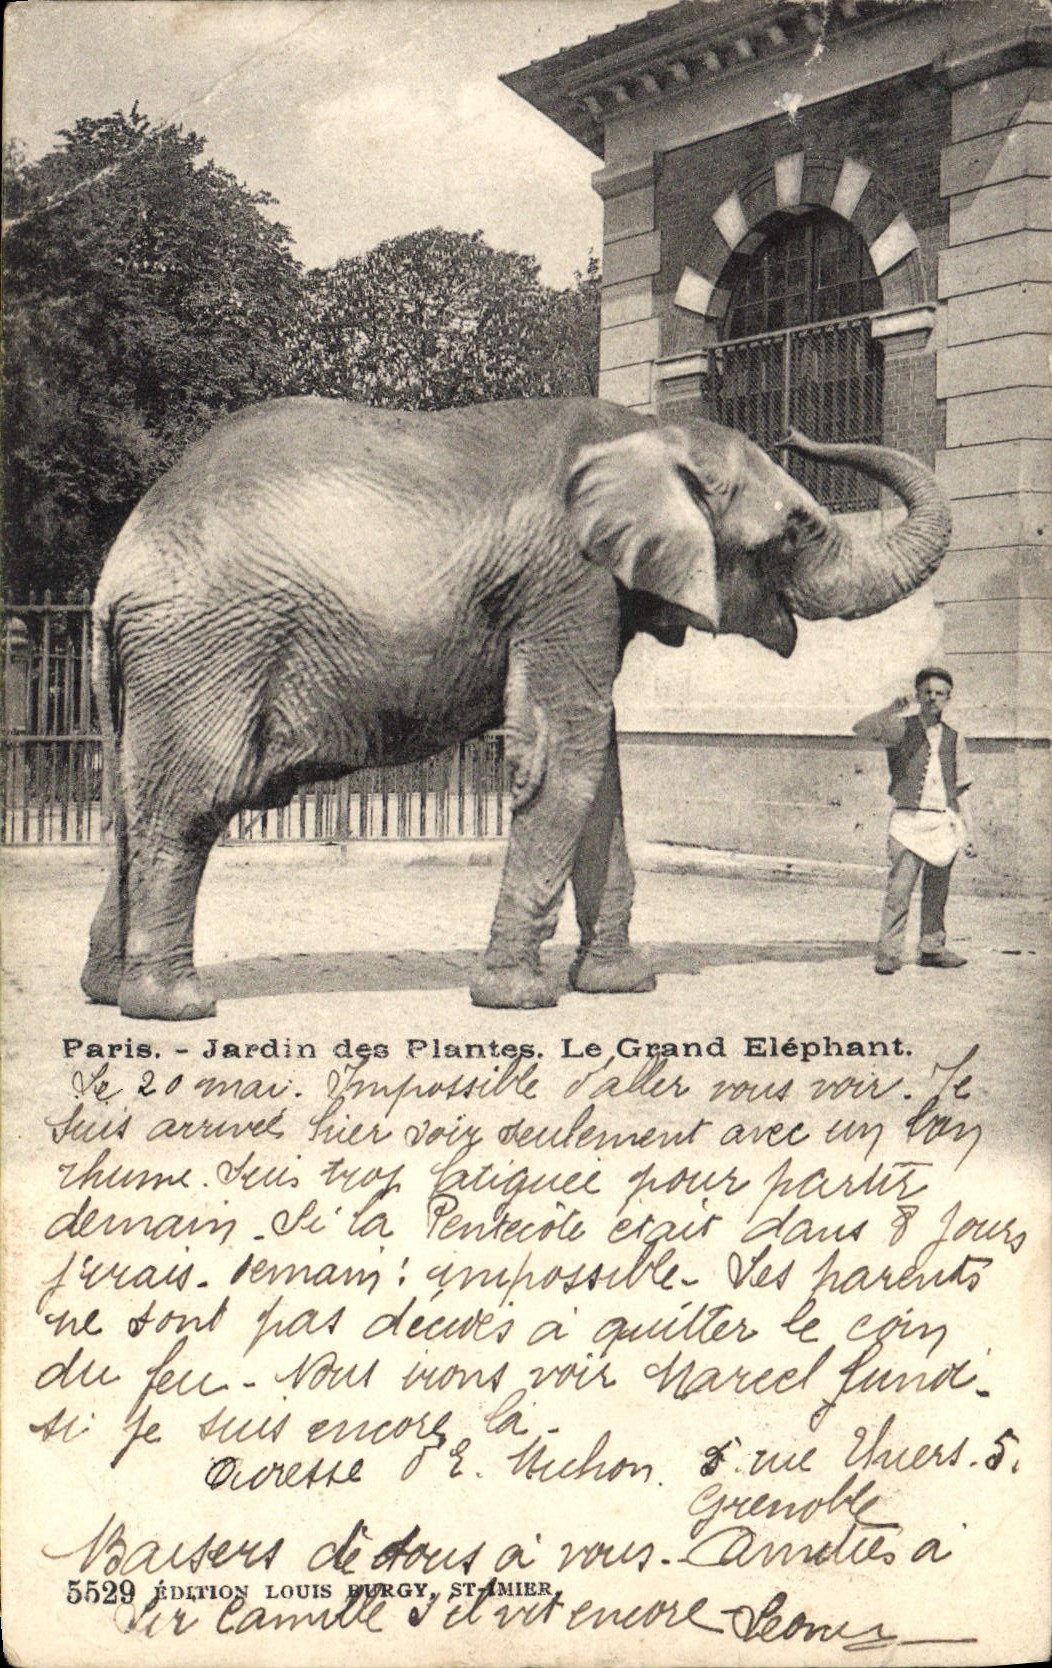 Paris. - Jardin des Plantes. Le Grand Eléphant.
Le 20 mai. Impossible d'aller vous voir. Je
suis arrivée hier soir seulement avec un bon
rhume. Suis trop fatiguée pour partir
demain. Si la Pentecôte était dans 8 jours
j'irais. Demain : impossible - Les parents
ne sont pas décidés à quitter le coin
du feu - Nous irons voir Marcel lundi -
si je suis encore là -
Adresse d'E. 5 rue Thiers. 5.
Grenoble
Baisers de tous à vous - Amitiés à
5529 ÉDITION LOUIS BURGY, ST-IMIER.
Camille s'il vit encore -